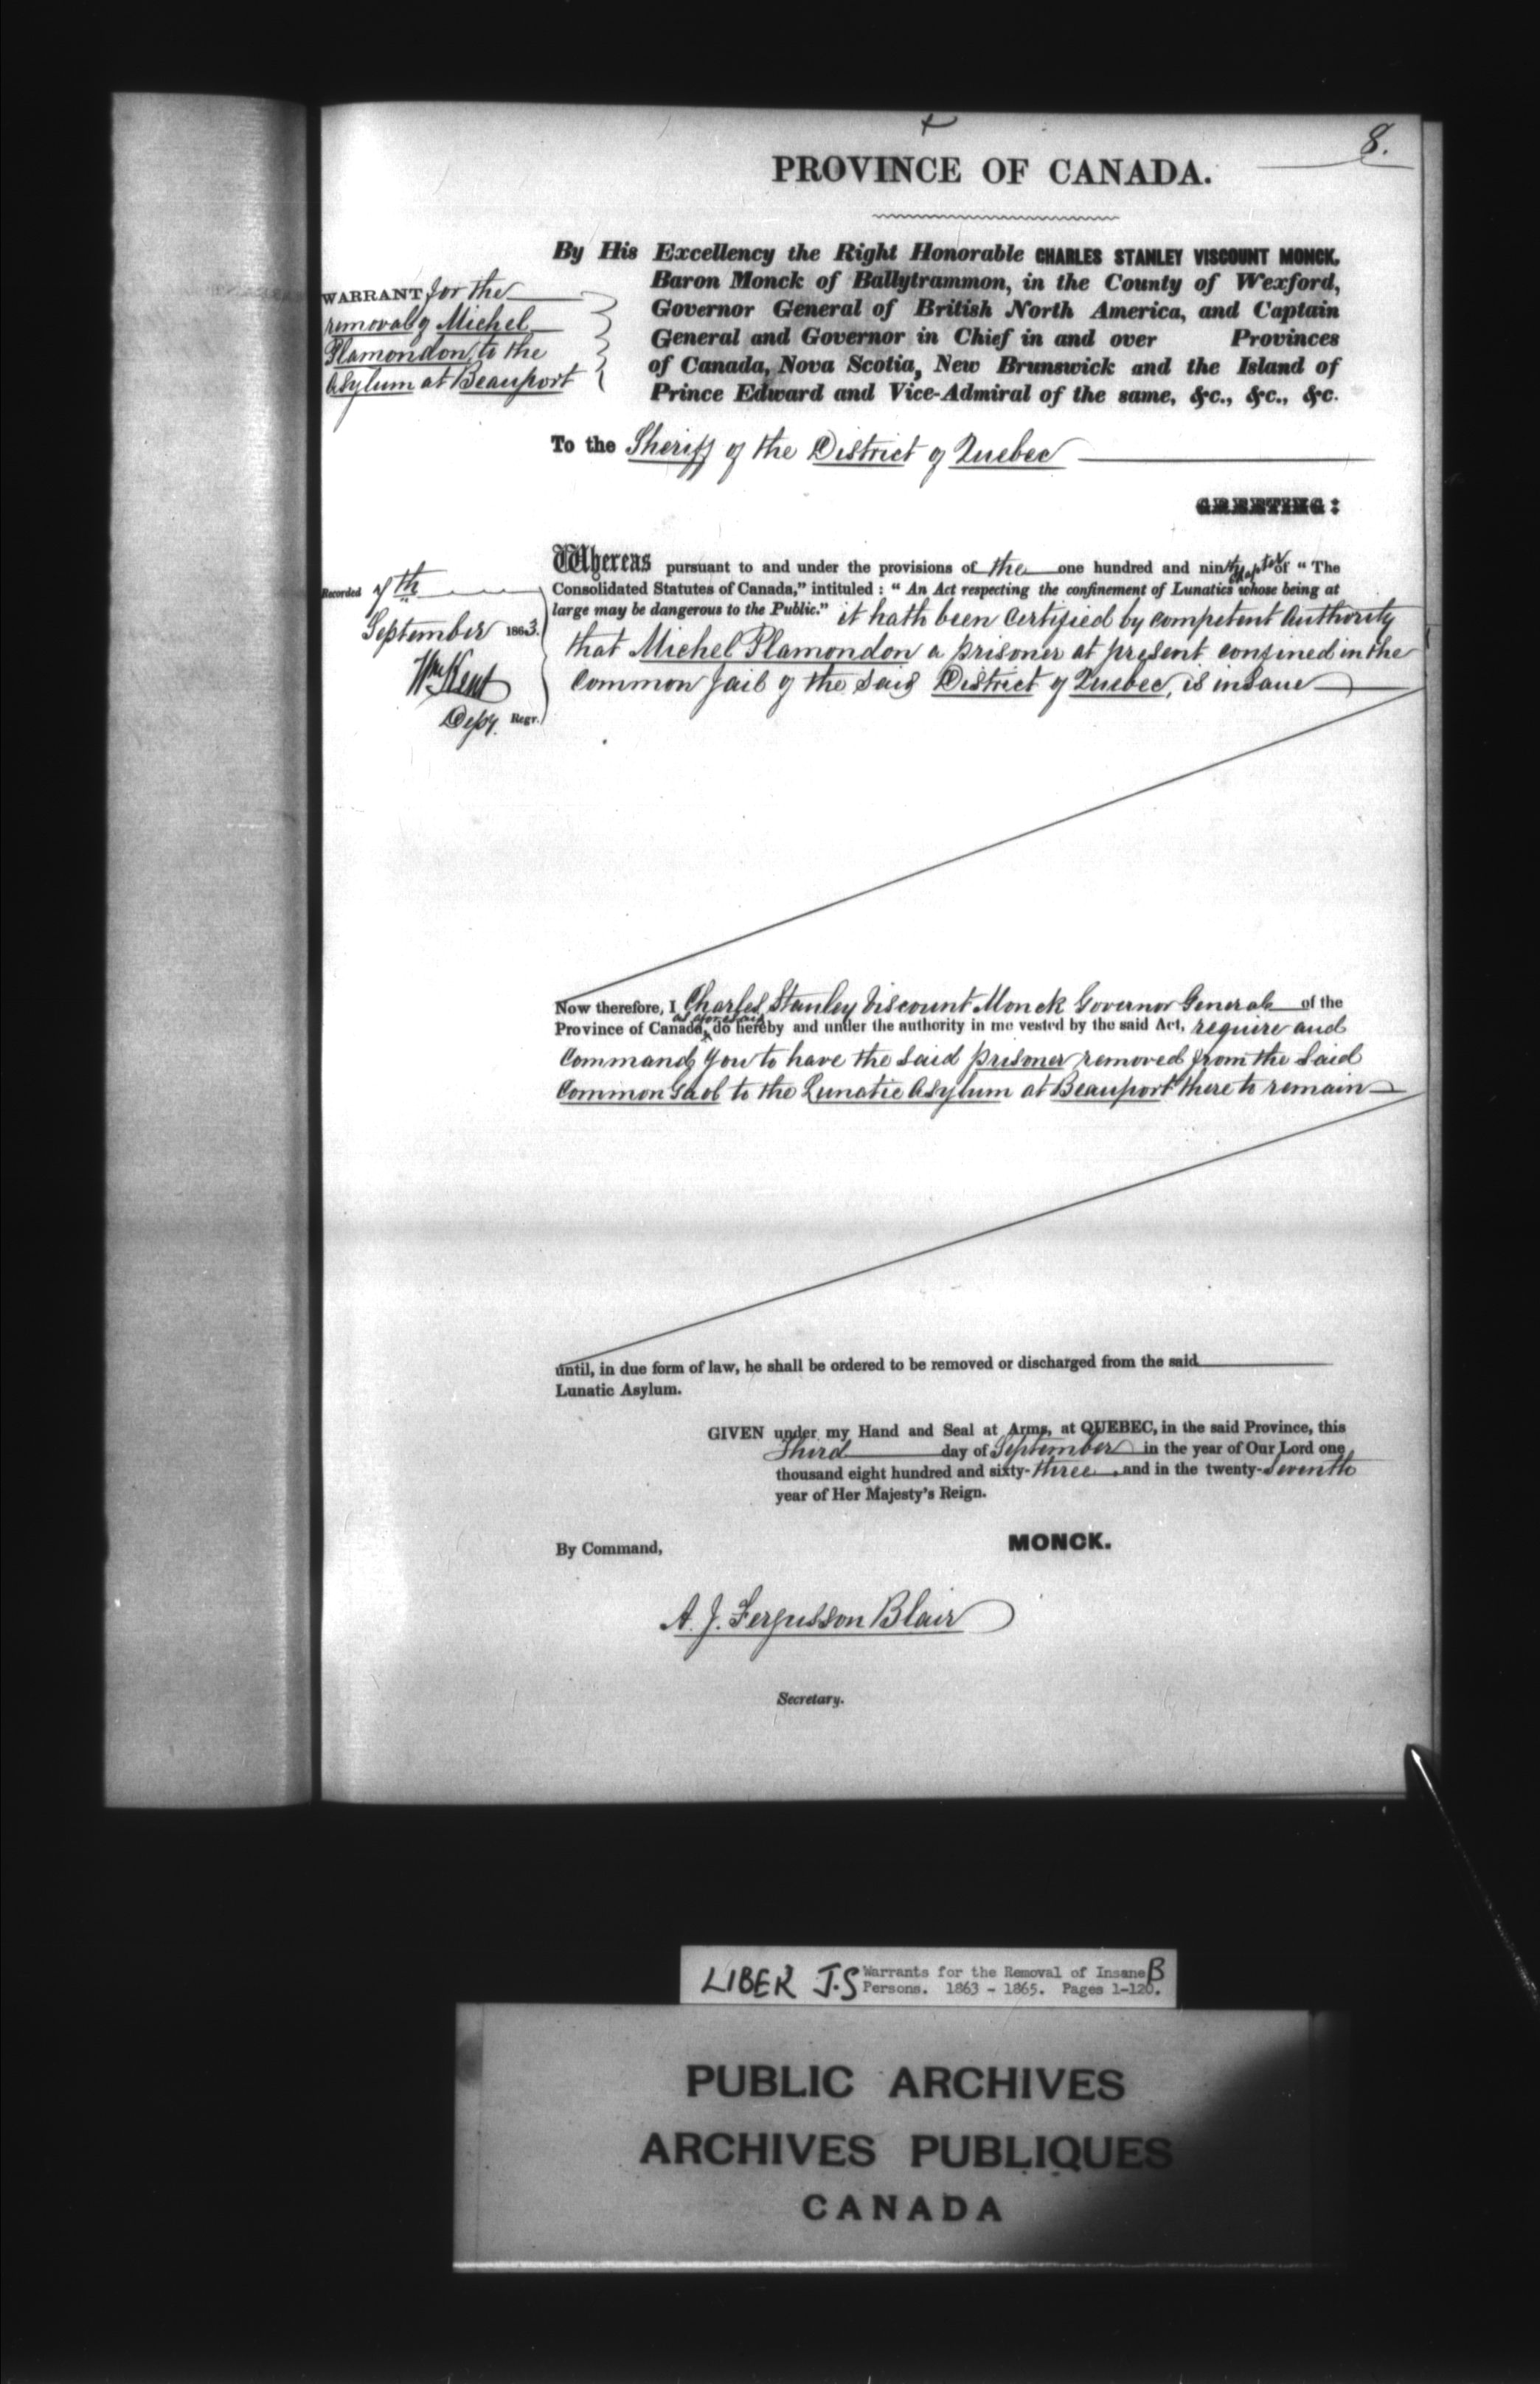 8.
PROVINCE OF CANADA.
By His Excellency the Right Honorable CHARLES STANLEY VISCOUNT MONCK,
Baron Monck of Ballytrammon, in the County of Wexford,
Governor General of British North America, and Captain
General and Governor in Chief in and over Provinces
of Canada, Nova Scotia, New Brunswick and the Island of
Prince Edward and Vice-Admiral of the same, &c., &c., &c.
WARRANT for the
removal of Michel
Plamondon, to the
Asylum at Beauport
To the Sheriff of the District of Quebec
GREETING:
Recorded 7th
September 1863.
Wm Kent
Depy. Regr.
Whereas pursuant to and under the provisions of the one hundred and ninth chapter of "The
Consolidated Statutes of Canada," intituled: "An Act respecting the confinement of Lunatics whose being at
large may be dangerous to the Public." it hath been certified by competent Authority
that Michel Plamondon a prisoner at present confined in the
Common Jail of the said District of Quebec, is insane
Now therefore, I Charles Stanley Viscount Monck Governor General of the
as aforesaid
Province of Canada, do hereby and under the authority in me vested by the said Act, require and
Command you to have the said prisoner removed from the said
Common Gaol to the Lunatic Asylum at Beauport there to remain
until, in due form of law, he shall be ordered to be removed or discharged from the said
Lunatic Asylum.
GIVEN under my Hand and Seal at Arms, at QUEBEC, in the said Province, this
Third day of September in the year of Our Lord one
thousand eight hundred and sixty-three and in the twenty-seventh
year of Her Majesty's Reign.
By Command,
MONCK.
A. J. Fergusson Blair
Secretary.
LIBER J.S Warrants for the Removal of Insane B
Persons. 1863 - 1865. Pages 1-120.
PUBLIC ARCHIVES
ARCHIVES PUBLIQUES
CANADA